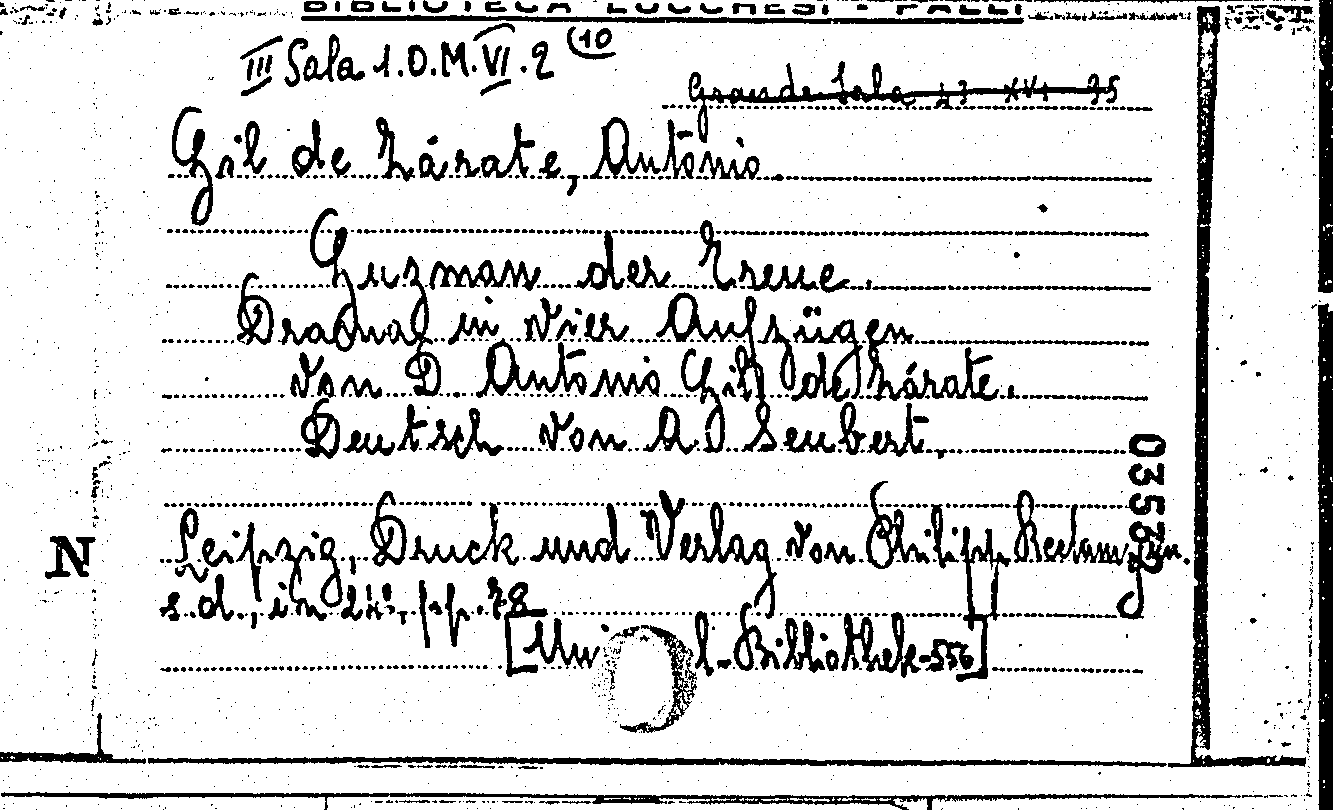 BIBLIOTECA LUCCHESI - PALLI
III Sala 1.O.M.VI.2 (10
Grande Sala 23 XVI 35
Gil de Zárate, Antonio.
Guzman der Treue.
Drama in vier Aufzügen
von D. Antonio Gil de Zárate.
Deutsch von A. Seubert.
Leipzig, Druck und Verlag von Philipp Reclam jun.
N
s. d., in 24°, pp. 78
[Uni l-Bibliothek-556]